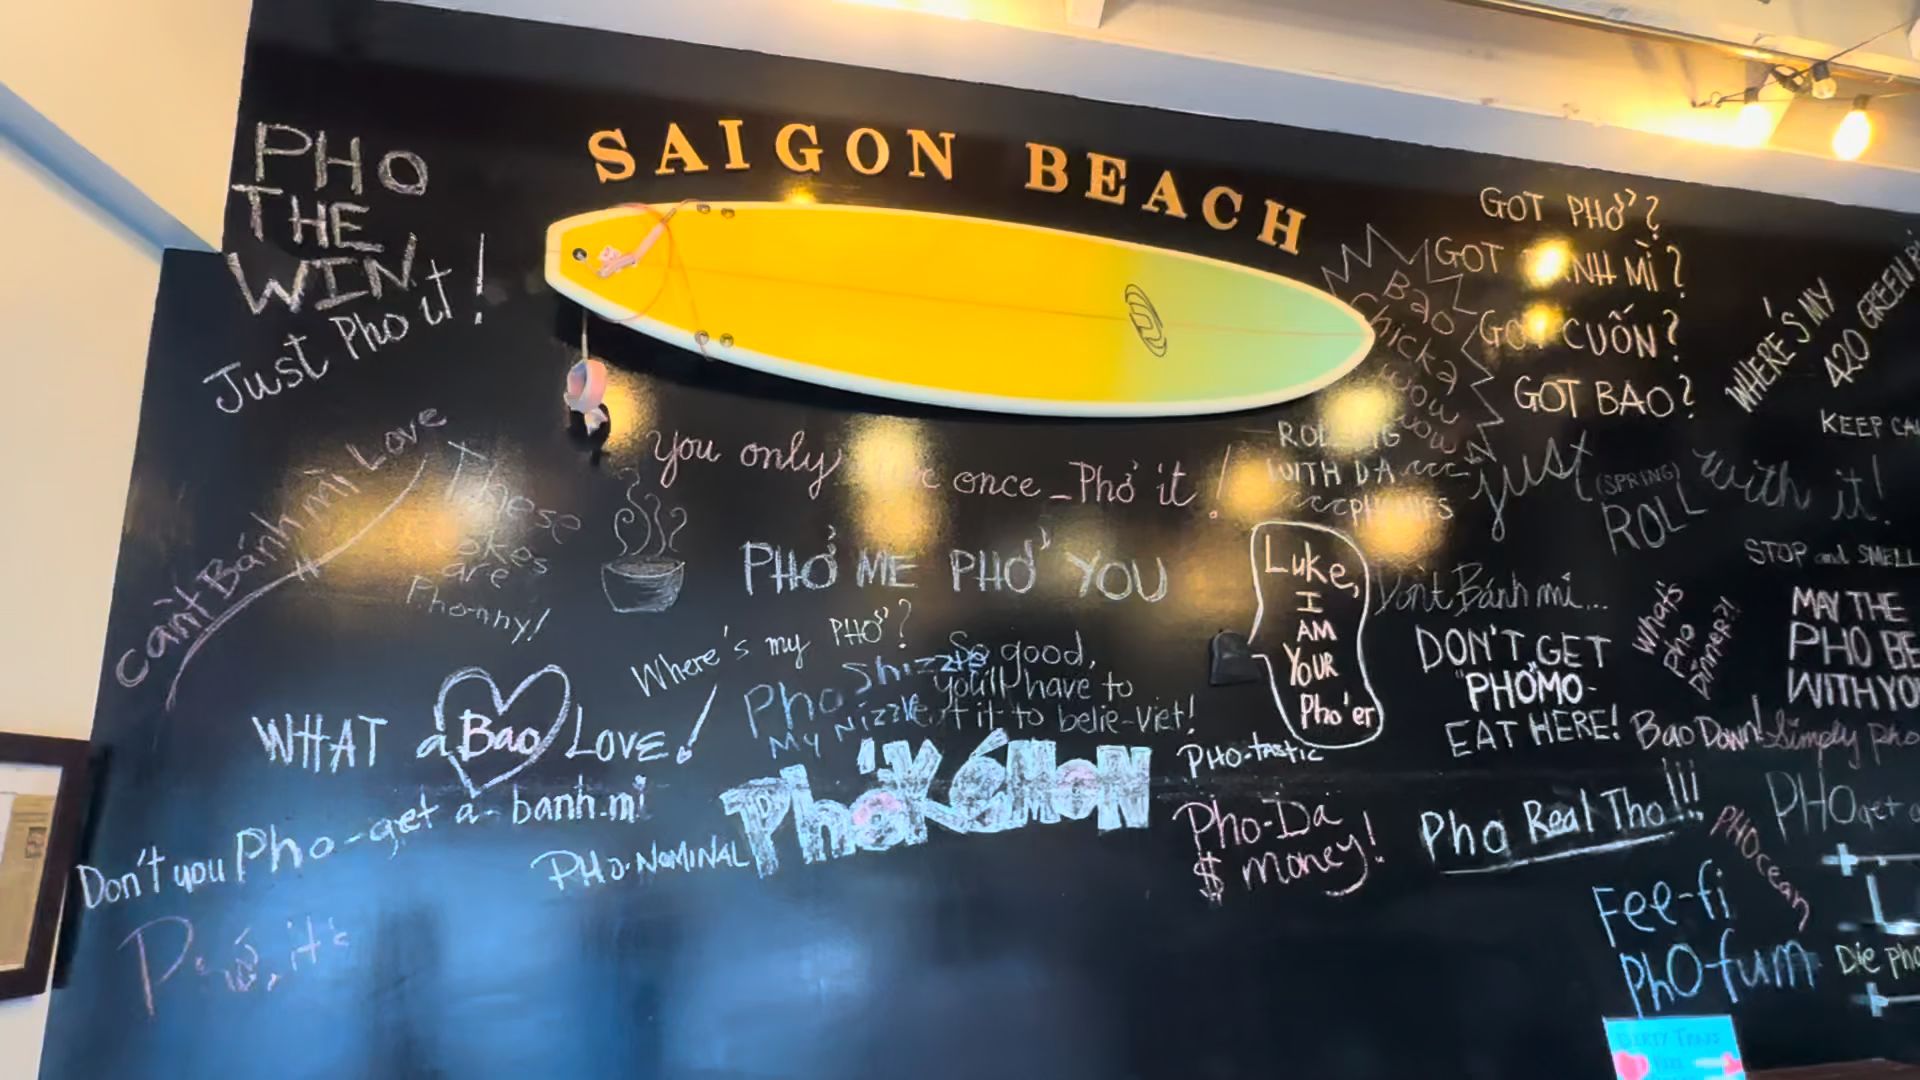 SAIGON BEACH
PHO
THE
WIN!
Just Pho it!
GOT PHỞ?
GOT NH MÌ?
GOT CUỐN?
GOT BAO?
Bao
Chicka
wow
wow
WHERE'S MY
420 GREEN
KEEP
Can't Bánh mì Love
These
are
Pho-nny!
you only once - Phở it!
WITH DA
just
(SPRING)
ROLL
with it!
STOP and SMELL
PHỞ ME PHỞ YOU
Luke,
I
AM
YOUR
Pho'er
Don't Bánh mì...
DON'T GET
"PHOMO"
EAT HERE!
What's
Pho
Dinner?!
MAY THE
PHO BE
WITH YOU
Where's my PHỞ?
So good,
you'll have to
it to belie-Viet!
Pho Shizzle
My Nizzle
WHAT a Bao LOVE!
PHO-tastic
Bao Down!
Simply pho
Don't you Pho-get a-banh.mi
PHO-NOMINAL
PhởKéMON
Pho-Da
$ money!
Pho Real Tho!!!
PHOcean
PHOget
Fee-fi
PhO-fum
Die Pho
it's